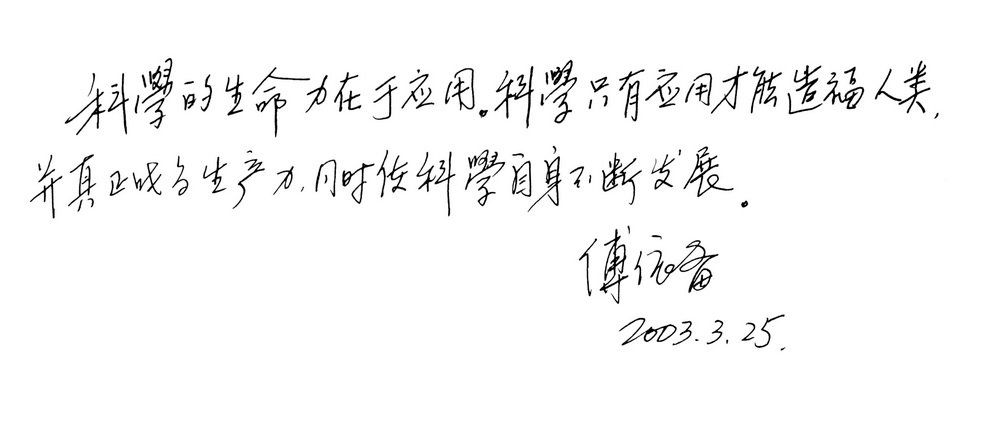 科學的生命力在于应用。科學只有应用才能造福人类,
并真正成为生产力,同时使科學自身不断发展。
傅依备
2003.3.25.